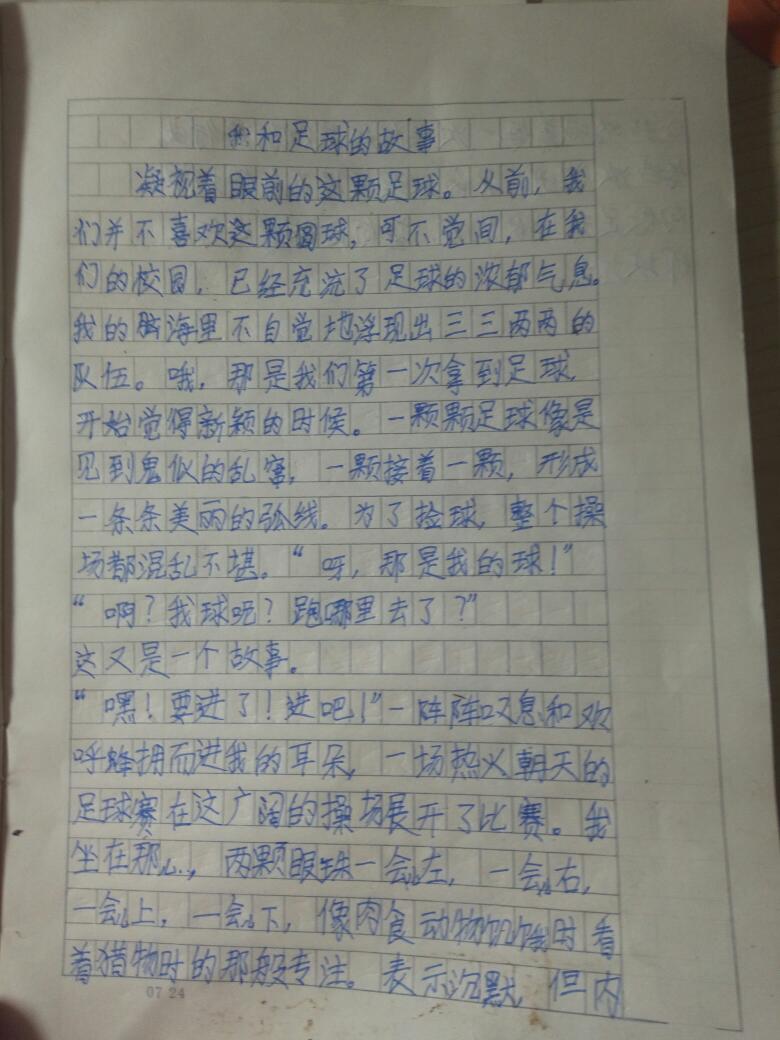 我和足球的故事
凝视着眼前的这颗足球。从前，我
们并不喜欢这颗圆球，可不觉间，在我
们的校园，已经充沉了足球的浓郁气息。
我的脑海里不自觉地浮现出三三两两的
队伍。哦，那是我们第一次拿到足球，
开始觉得新颖的时候。一颗颗足球像是
见到鬼似的乱窜，一颗接着一颗，形成
一条条美丽的弧线。为了捡球，整个操
场都混乱不堪。“呀，那是我的球！”
“啊？我球呢？跑哪里去了？”
这又是一个故事。
“嘿！要进了！进吧！”一阵阵叹息和欢
呼蜂拥而进我的耳朵，一场热火朝天的
足球赛在这广阔的操场展开了比赛。我
坐在那儿，两颗眼珠一会儿左，一会儿右，
一会儿上，一会儿下，像肉食动物饥饿时看
着猎物时的那般专注。表示沉默，但内
07 24